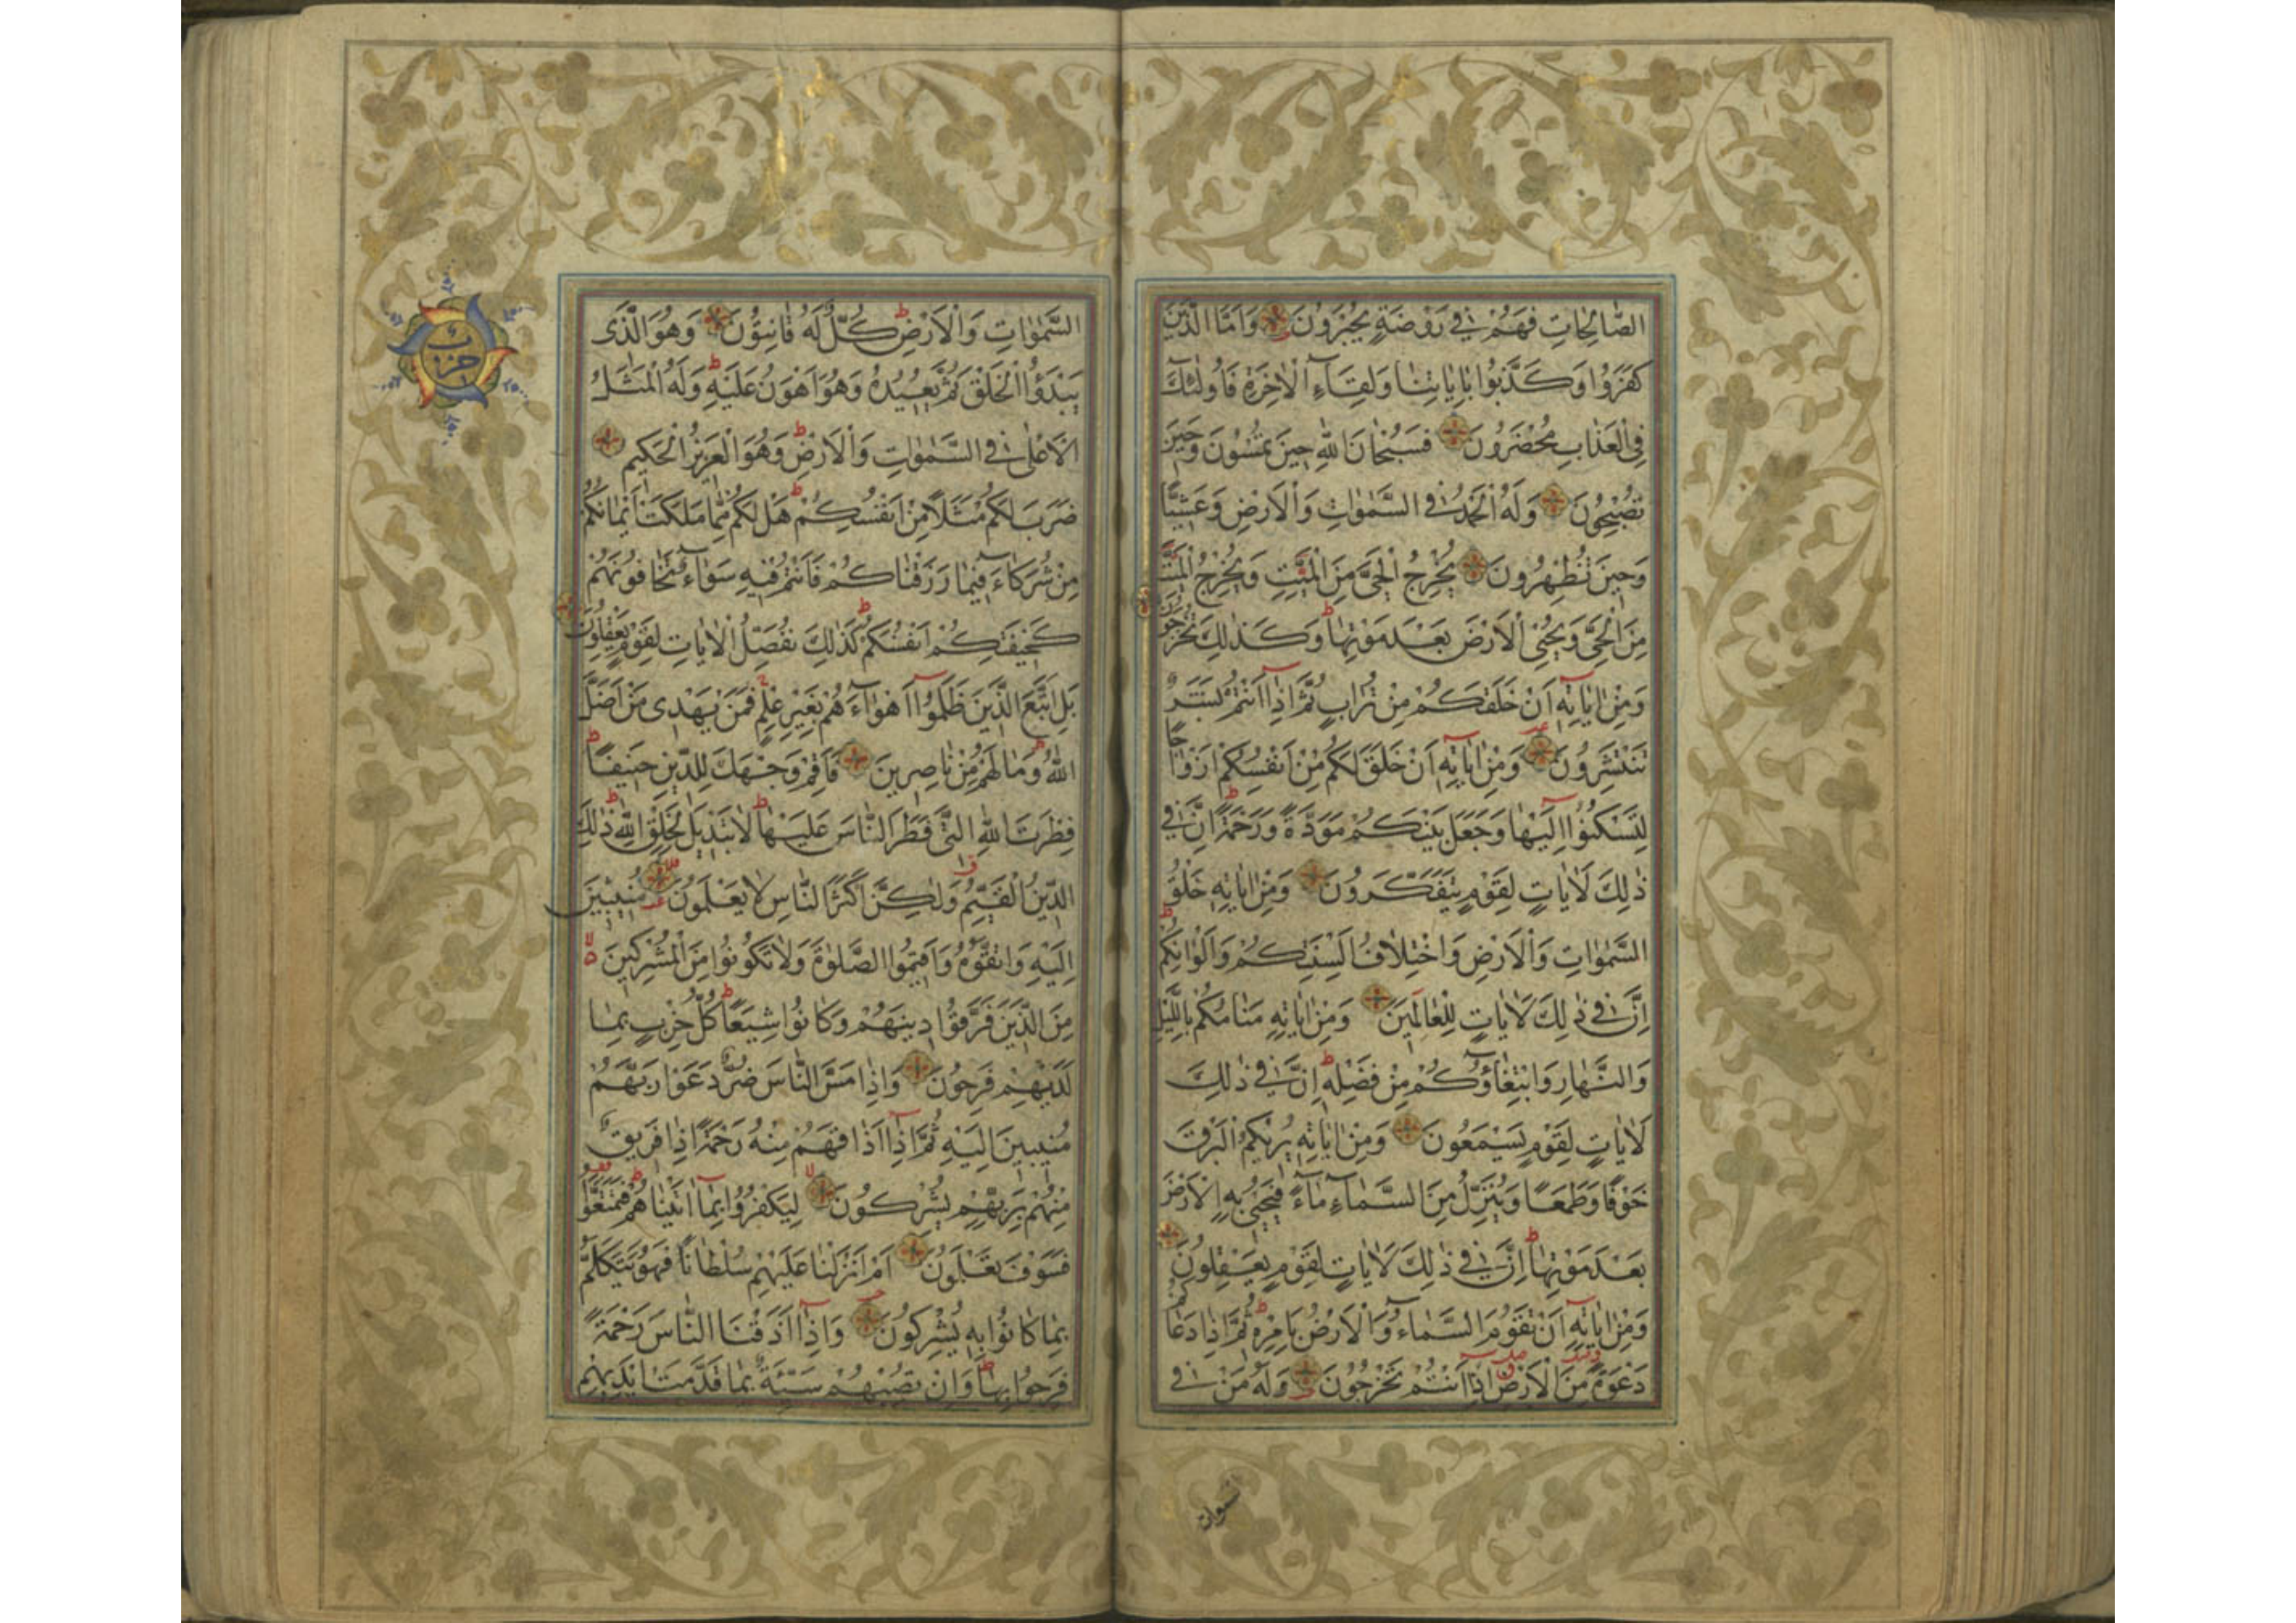 الصَّالِحَاتِ فَهُمْ فِي رَوْضَةٍ يُحْبَرُونَ وَأَمَّا الَّذِينَ
كَفَرُوا وَكَذَّبُوا بِاٰيَاتِنَا وَلِقَآءِ الْاٰخِرَةِ فَاُولٰئِكَ
فِي الْعَذَابِ مُحْضَرُونَ فَسُبْحَانَ اللّٰهِ حِينَ تُمْسُونَ وَحِينَ
تُصْبِحُونَ وَلَهُ الْحَمْدُ فِي السَّمٰوَاتِ وَالْاَرْضِ وَعَشِيًّا
وَحِينَ تُظْهِرُونَ يُخْرِجُ الْحَيَّ مِنَ الْمَيِّتِ وَيُخْرِجُ الْمَيِّتَ
مِنَ الْحَيِّ وَيُحْيِي الْاَرْضَ بَعْدَ مَوْتِهَا وَكَذٰلِكَ تُخْرَجُونَ
وَمِنْ اٰيَاتِهِ اَنْ خَلَقَكُمْ مِنْ تُرَابٍ ثُمَّ اِذَا اَنْتُمْ بَشَرٌ
تَنْتَشِرُونَ وَمِنْ اٰيَاتِهِ اَنْ خَلَقَ لَكُمْ مِنْ اَنْفُسِكُمْ اَزْوَاجًا
لِتَسْكُنُوا اِلَيْهَا وَجَعَلَ بَيْنَكُمْ مَوَدَّةً وَرَحْمَةً اِنَّ فِي
ذٰلِكَ لَاٰيَاتٍ لِقَوْمٍ يَتَفَكَّرُونَ وَمِنْ اٰيَاتِهِ خَلْقُ
السَّمٰوَاتِ وَالْاَرْضِ وَاخْتِلَافُ اَلْسِنَتِكُمْ وَاَلْوَانِكُمْ
اِنَّ فِي ذٰلِكَ لَاٰيَاتٍ لِلْعَالِمِينَ وَمِنْ اٰيَاتِهِ مَنَامُكُمْ بِاللَّيْلِ
وَالنَّهَارِ وَابْتِغَاؤُكُمْ مِنْ فَضْلِهِ اِنَّ فِي ذٰلِكَ
لَاٰيَاتٍ لِقَوْمٍ يَسْمَعُونَ وَمِنْ اٰيَاتِهِ يُرِيكُمُ الْبَرْقَ
خَوْفًا وَطَمَعًا وَيُنَزِّلُ مِنَ السَّمَآءِ مَآءً فَيُحْيِي بِهِ الْاَرْضَ
بَعْدَ مَوْتِهَا اِنَّ فِي ذٰلِكَ لَاٰيَاتٍ لِقَوْمٍ يَعْقِلُونَ
وَمِنْ اٰيَاتِهِ اَنْ تَقُومَ السَّمَآءُ وَالْاَرْضُ بِاَمْرِهِ ثُمَّ اِذَا دَعَاكُمْ
دَعْوَةً مِنَ الْاَرْضِ اِذَا اَنْتُمْ تَخْرُجُونَ وَلَهُ مَنْ فِي
السموات
السَّمٰوَاتِ وَالْاَرْضِ كُلٌّ لَهُ قَانِتُونَ وَهُوَ الَّذِي
يَبْدَؤُا الْخَلْقَ ثُمَّ يُعِيدُهُ وَهُوَ اَهْوَنُ عَلَيْهِ وَلَهُ الْمَثَلُ
الْاَعْلٰى فِي السَّمٰوَاتِ وَالْاَرْضِ وَهُوَ الْعَزِيزُ الْحَكِيمُ
ضَرَبَ لَكُمْ مَثَلًا مِنْ اَنْفُسِكُمْ هَلْ لَكُمْ مِمَّا مَلَكَتْ اَيْمَانُكُمْ
مِنْ شُرَكَآءَ فِيمَا رَزَقْنَاكُمْ فَاَنْتُمْ فِيهِ سَوَآءٌ تَخَافُونَهُمْ
كَخِيفَتِكُمْ اَنْفُسَكُمْ كَذٰلِكَ نُفَصِّلُ الْاٰيَاتِ لِقَوْمٍ يَعْقِلُونَ
بَلِ اتَّبَعَ الَّذِينَ ظَلَمُوا اَهْوَآءَهُمْ بِغَيْرِ عِلْمٍ فَمَنْ يَهْدِي مَنْ اَضَلَّ
اللّٰهُ وَمَا لَهُمْ مِنْ نَاصِرِينَ فَاَقِمْ وَجْهَكَ لِلدِّينِ حَنِيفًا
فِطْرَتَ اللّٰهِ الَّتِي فَطَرَ النَّاسَ عَلَيْهَا لَا تَبْدِيلَ لِخَلْقِ اللّٰهِ ذٰلِكَ
الدِّينُ الْقَيِّمُ وَلٰكِنَّ اَكْثَرَ النَّاسِ لَا يَعْلَمُونَ مُنِيبِينَ
اِلَيْهِ وَاتَّقُوهُ وَاَقِيمُوا الصَّلٰوةَ وَلَا تَكُونُوا مِنَ الْمُشْرِكِينَ
مِنَ الَّذِينَ فَرَّقُوا دِينَهُمْ وَكَانُوا شِيَعًا كُلُّ حِزْبٍ بِمَا
لَدَيْهِمْ فَرِحُونَ وَاِذَا مَسَّ النَّاسَ ضُرٌّ دَعَوْا رَبَّهُمْ
مُنِيبِينَ اِلَيْهِ ثُمَّ اِذَا اَذَاقَهُمْ مِنْهُ رَحْمَةً اِذَا فَرِيقٌ
مِنْهُمْ بِرَبِّهِمْ يُشْرِكُونَ لِيَكْفُرُوا بِمَا اٰتَيْنَاهُمْ فَتَمَتَّعُوا
فَسَوْفَ تَعْلَمُونَ اَمْ اَنْزَلْنَا عَلَيْهِمْ سُلْطَانًا فَهُوَ يَتَكَلَّمُ
بِمَا كَانُوا بِهِ يُشْرِكُونَ وَاِذَا اَذَقْنَا النَّاسَ رَحْمَةً
فَرِحُوا بِهَا وَاِنْ تُصِبْهُمْ سَيِّئَةٌ بِمَا قَدَّمَتْ اَيْدِيهِمْ
حزب